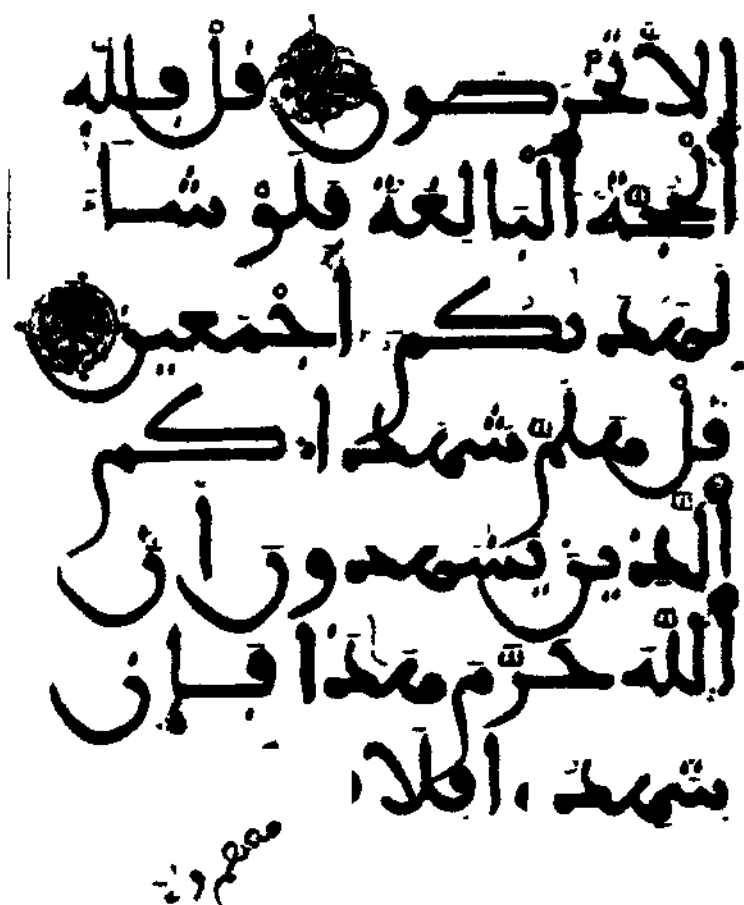 الا تخرصون قل فلله
الحجة البالغة فلو شا
لهديكم أجمعين
قل هلم شهدا كم
الذين يشهدون أن
الله حرم هذا فإن
شهدوا فلا